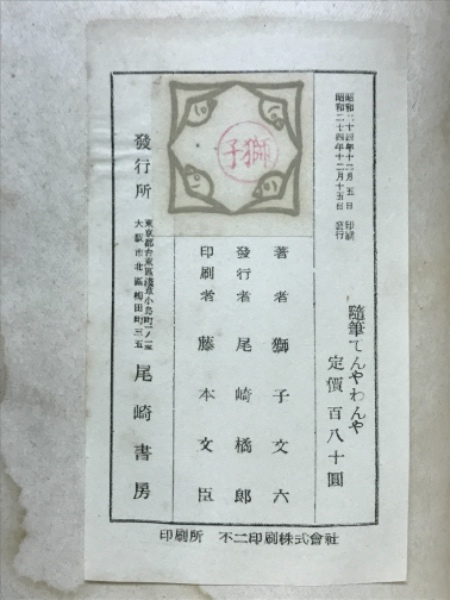 昭和二十四年十二月五日 印刷
昭和二十四年十二月十五日 發行
隨筆てんやわんや
定價百八十圓
著者 獅子文六
發行者 尾崎橘郎
印刷者 藤本文臣
獅子
發行所
東京都台東區淺草小島町二ノ一
大阪市北區梅田町三五
尾崎書房
印刷所 不二印刷株式會社